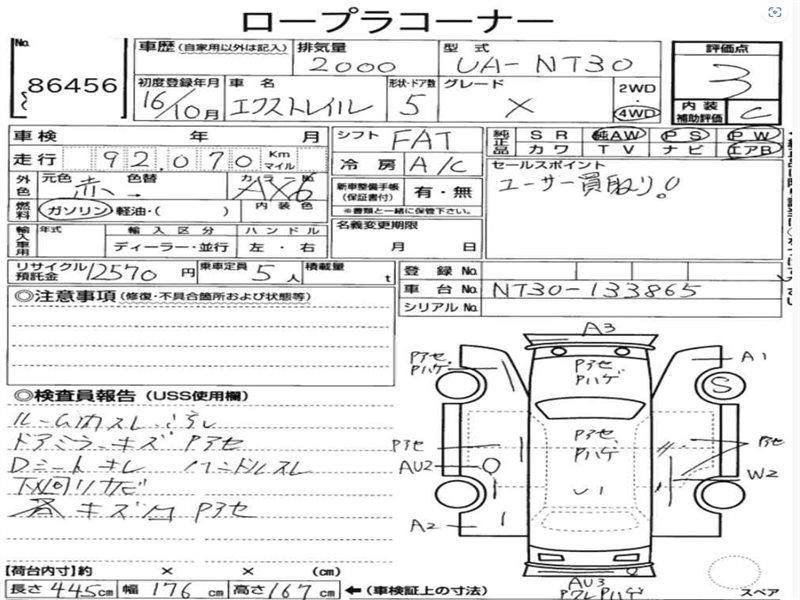 ロープラコーナー
No.
86456
車歴 (自家用以外は記入)
排気量
2000
型式
UA-NT30
評価点
3
内装補助評価
C
初度登録年月
16/10月
車名
エクストレイル
形状・ドア数
5
グレード
X
2WD
・
4WD
車検 年 月
シフト
FAT
純正品
SR 純AW PS PW
カワ TV ナビ エアB
走行 92,070 Km マイル
冷房 A/C
セールスポイント
ユーザー買取り!!
外色
元色
赤
色替
カラーNo.
AX6
新車整備手帳(保証書付) 有・無
※書類と一緒に保管下さい。
燃料
ガソリン・軽油・( )
内装色
名義変更期限
月 日
輸入車用
年式
輸入区分
ディーラー・並行
ハンドル
左・右
リサイクル預託金
12570円
乗車定員
5人
積載量
t
登録No.
車台No.
NT30-133865
シリアルNo.
◎注意事項(修復・不具合箇所および状態等)
◎検査員報告 (USS使用欄)
ドアミラーキズ Pアセ
Dシートキレ ハンドルスレ
下回りサビ
キズ凹 Pアセ
A3
Pアセ
Pハゲ
Pアセ
Pハゲ
A1
S
Pアセ
Pハゲ
Pアセ
Pアセ
AU2
W2
U1
A2
AU3
スペア
【荷台内寸】約 × × (cm)
長さ 445cm 幅 176cm 高さ 167cm ←(車検証上の寸法)